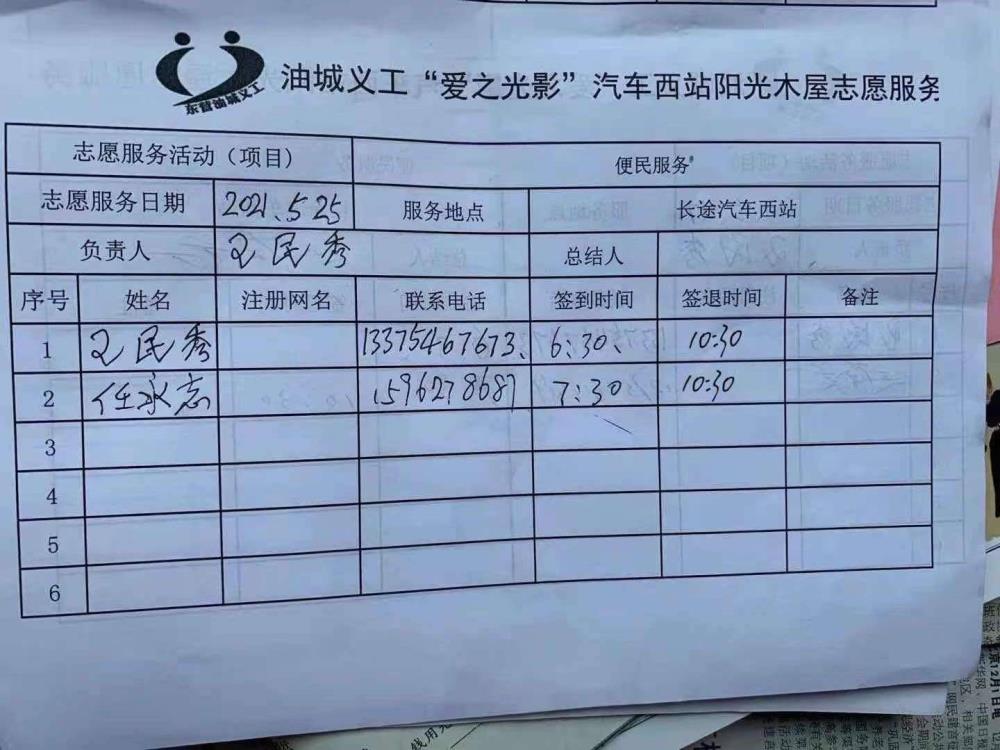 东营油城义工
油城义工“爱之光影”汽车西站阳光木屋志愿服务
志愿服务活动（项目） 便民服务
志愿服务日期 2021.5.25 服务地点 长途汽车西站
负责人 王民秀 总结人
序号 姓名 注册网名 联系电话 签到时间 签退时间 备注
1 王民秀 13375467673、 6:30、 10:30
2 任永志 1596278687 7:30 10:30
3
4
5
6